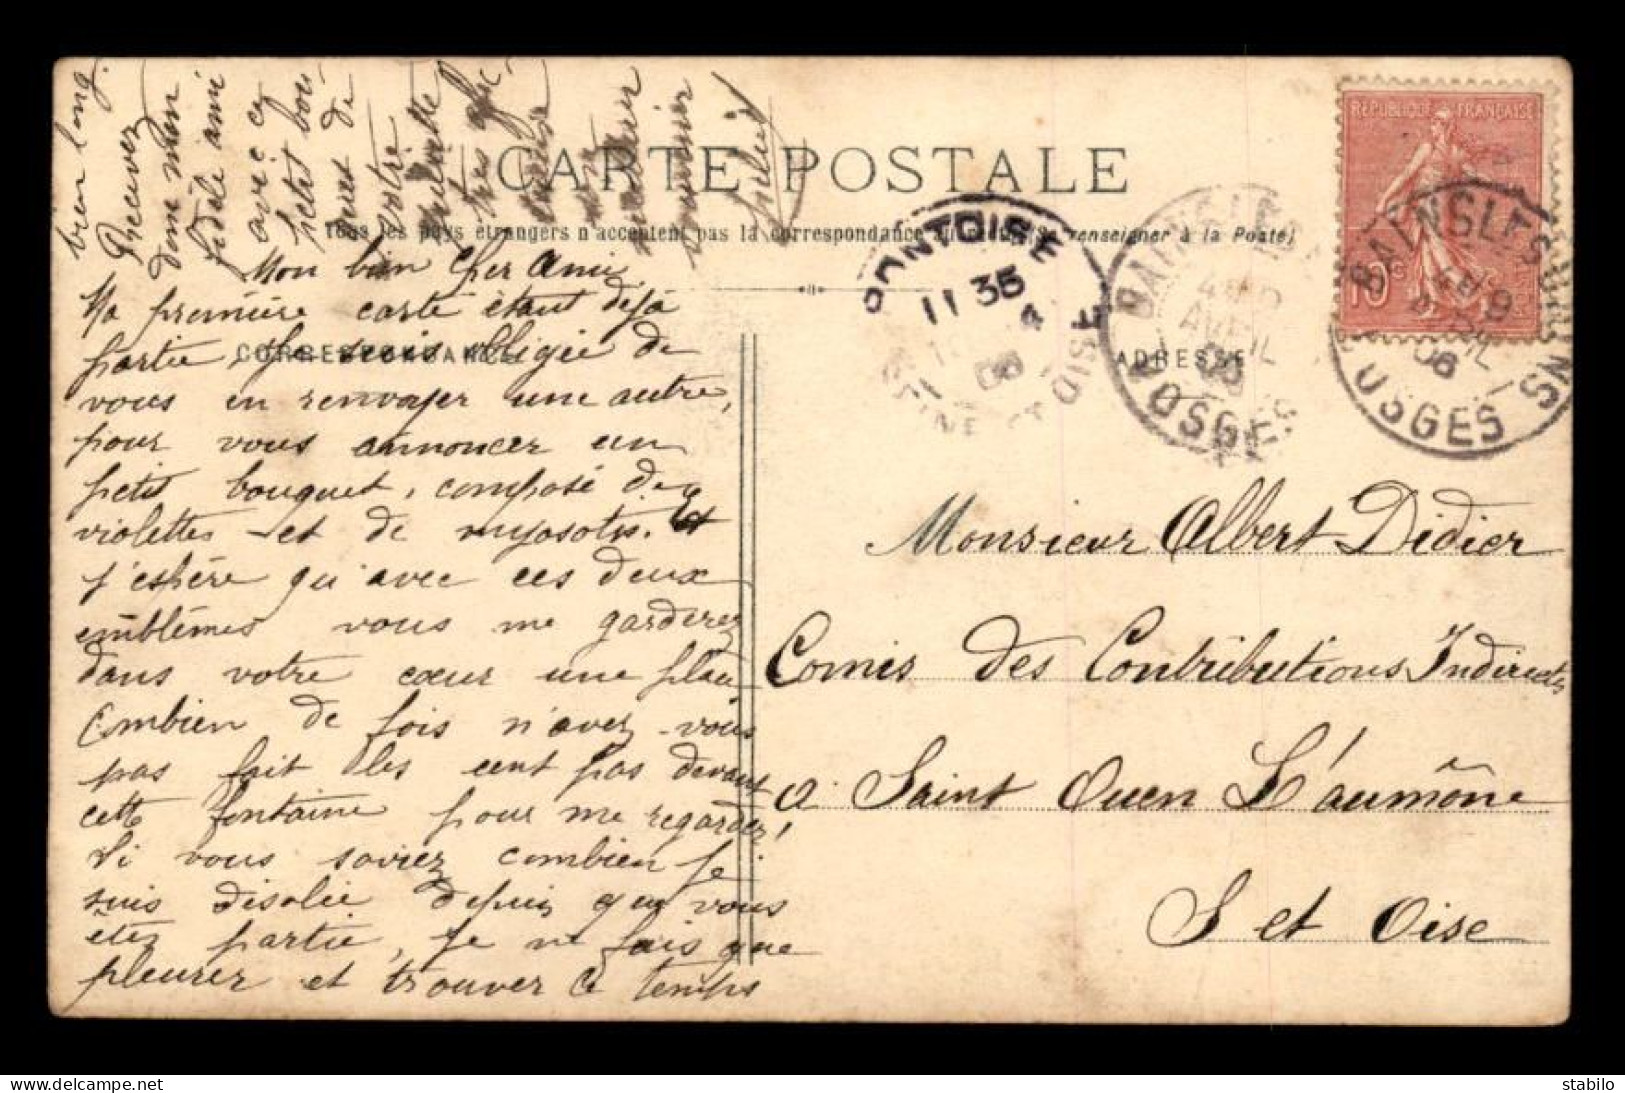 CARTE POSTALE
Tous les pays étrangers n'acceptent pas la correspondance au recto (Se renseigner à la Poste)
CORRESPONDANCE
ADRESSE
Mon bien Cher Ami,
Ma première carte étant déjà
partie je suis obligée de
vous en renvoyer une autre,
pour vous annoncer un
petit bouquet, composé de
violettes et de myosotis. et
j'espère qu'avec ces deux
emblèmes vous me garderez
dans votre cœur une place
Combien de fois n'avez-vous
pas fait les cent pas devant
cette fontaine pour me regarder!
Si vous saviez combien je
suis désolée depuis que vous
êtes partie, je ne fais que
pleurer et trouver ce temps
bien long.
Recevez
donc mon
fidèle ami
avec ce
petit
de
votre
très
Monsieur Albert Didier
Comis des Contributions Indirects
a Saint Ouen L'aumône
S et Oise
REPUBLIQUE FRANÇAISE
10 c
PONTOISE
11 35
4
06
SEINE ET OISE
BAINS-LES-BAINS
AVRIL
VOSGES
BAINS-LES-BAINS
9
AVRIL
06
VOSGES
delcampe.net
stabilo